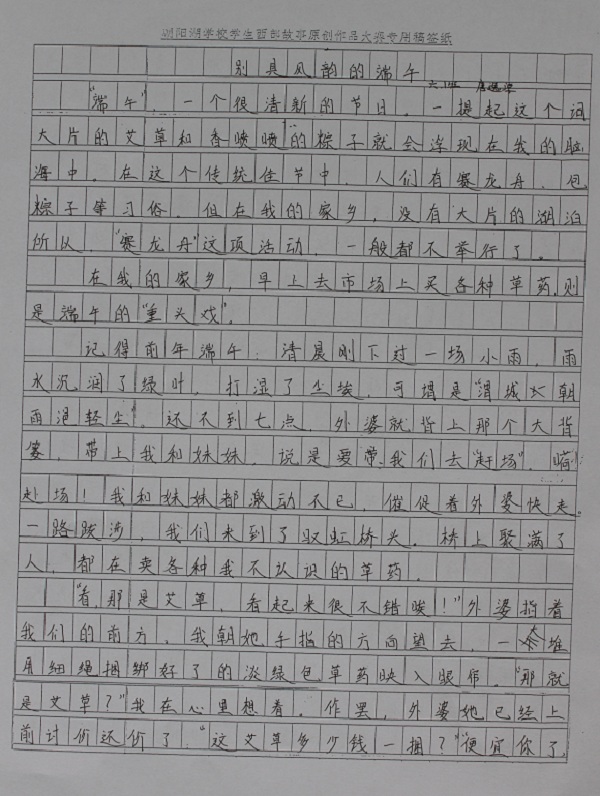 浏阳湖学校学生西部教亚原创作品大赛专用稿签纸
别具风韵的端午
六(四)
"端午",一个很清新的节日。一提起这个词
大片的艾草和香喷喷的粽子就会浮现在我的脑
海中。在这个传统佳节中,人们有赛龙舟、包
粽子等习俗。但在我的家乡,没有大片的湖泊
所以,"赛龙舟"这项活动,一般都不举行了。
在我的家乡,早上去市场上买各种草药,则
是端午的"重头戏"。
记得前年端午:清晨刚下过一场小雨,雨
水沉润了绿叶,打湿了尘埃,可谓是"渭城朝
雨浥轻尘"。还不到七点,外婆就背上那个大背
篓,带上我和妹妹,说是要带我们去"赶场"。嗬
赴场!我和妹妹都激动不已,催促着外婆快走。
一路跋涉,我们来到了驭虹桥头。桥上聚满了
人,都在卖各种我不认识的草药。
"看,那是艾草,看起来很不错唉!"外婆指着
我们的前方。我朝她手指的方向望去,一大堆
用细绳捆绑好了的淡绿色草药映入眼帘。"那就
是艾草?"我在心里想着。作罢,外婆她已经上
前讨价还价了:"这艾草多少钱一捆?""便宜你了,